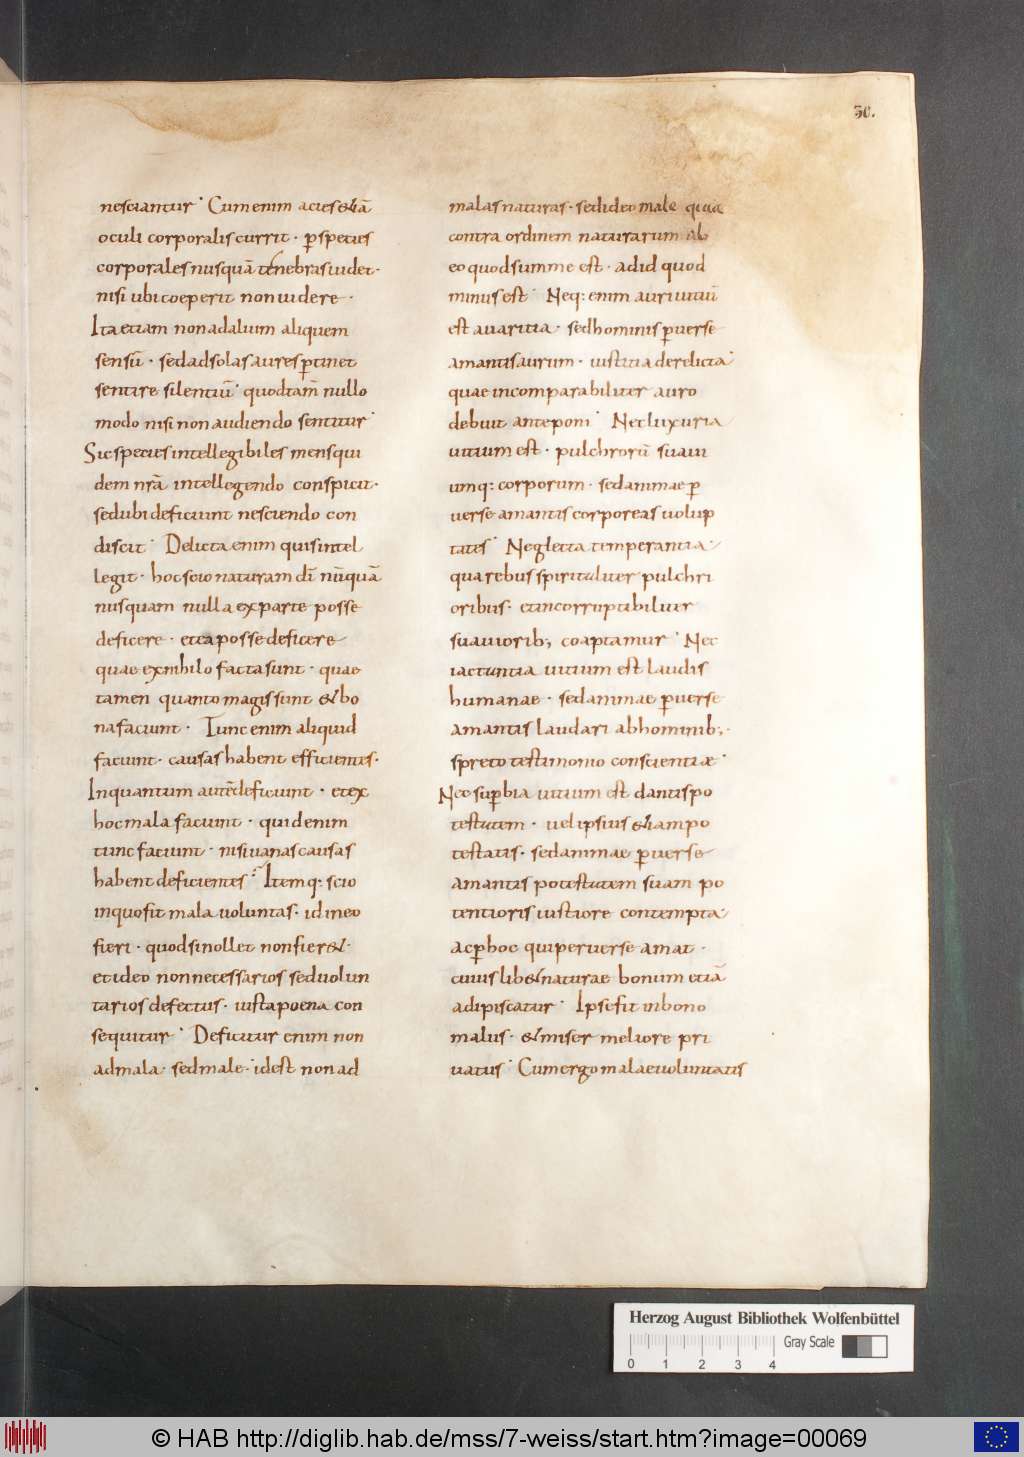 30.
nesciantur· Cum enim acies &iā
oculi corporalis currit · p̱ species
corporales nusquā tenebras uidet·
nisi ubi coeperit non uidere ·
Ita etiam non ad alium aliquem
sensū · sed ad solas aures p̱tinet
sentire silentiū· quod tam̄ nullo
modo nisi non audiendo sentitur·
Sic species intellegibiles mens qui
dem nr̄a intellegendo conspicit·
sed ubi deficiunt nesciendo con
discit· Delicta enim quis intel
legit· hoc scio naturam dī nūquā
nusquam nulla ex parte posse
deficere · et ea posse deficere
quae ex nihilo facta sunt · quae
tamen quanto magis sunt & bo
na faciunt · Tunc enim aliquid
faciunt· causas habent efficientes·
Inquantum autē deficiunt · et ex
hoc mala faciunt · quid enim
tunc faciunt · nisi uanas causas
habent deficientes· Itemq: scio
in quo fit mala uoluntas· id in eo
fieri · quod si nollet non fier&·
et ideo non necessarios sed uolun
tarios defectus · iusta poena con
sequitur · Deficitur enim non
ad mala· sed male· id est non ad
malas naturas · sed ideo male quia
contra ordinem naturarum ab
eo quod summe est · ad id quod
minus est · Neq: enim auri uitiū
est auaritia · sed hominis p̱uerse
amantis aurum · iustitia derelicta·
quae incomparabiliter auro
debuit anteponi · Nec luxuria
uitium est · pulchrorū suaui
umq: corporum · sed animae p̱
uerse amantis corporeas uolup
tates· Neglecta temperantia·
qua rebus spiritaliter pulchri
oribus· et incorruptibiliter
suauiorib; coaptamur · Nec
iactantia uitium est laudis
humanae · sed animae p̱uerse
amantis laudari ab hominib;·
spreto testimonio conscientiæ·
Nec sup̱bia uitium est dantis po
testatem · uel ipsius &iam po
testatis· sed animae p̱uerse
amantis potestatem suam po
tentioris iustiore contempta·
ac p̱ hoc qui peruerse amat ·
cuius lib& naturae bonum etiā
adipiscatur · Ipse fit in bono
malus· & miser meliore pri
uatus· Cum ergo malae uoluntatis
Herzog August Bibliothek Wolfenbüttel
Gray Scale
0 1 2 3 4
© HAB http://diglib.hab.de/mss/7-weiss/start.htm?image=00069